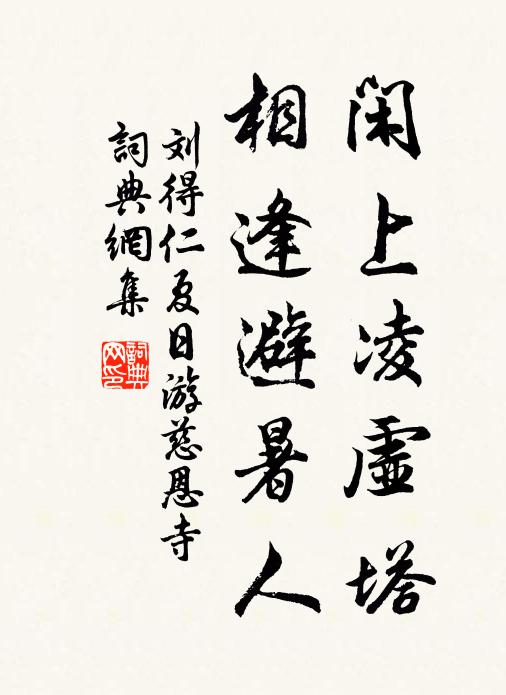 閑上凌虛塔
相逢避暑人
刘得仁夏日游慈恩寺
詞典網集
詞典
网印